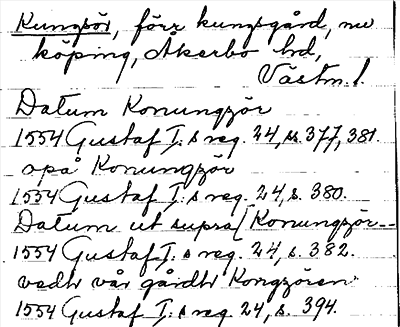 Kungsör, förr kungsgård, nu
köping, Åkerbo hd,
Västm. l.
Datum Konungzör
1554 Gustaf I:s reg. 24, ss. 377, 381.
opå Konungzör
1554 Gustaf I:s reg. 24, s. 380.
Datum ut supra [Konungzör--
1554 Gustaf I:s reg. 24, s. 382.
vedtr vår gårdtr Kongzören
1554 Gustaf I:s reg. 24, s. 394.